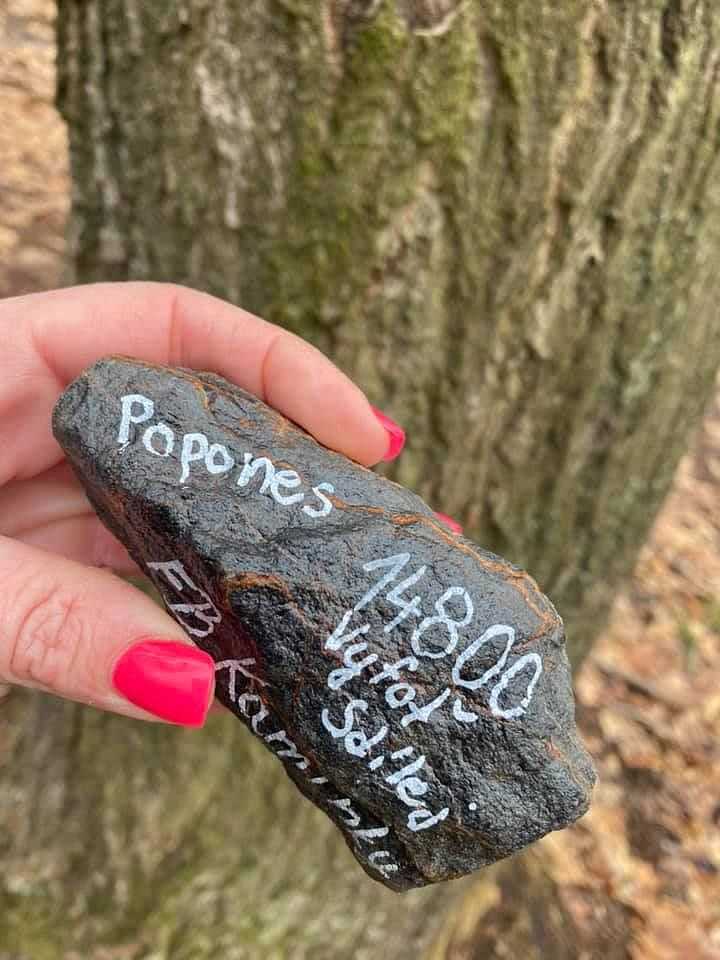 Popones
14800
Vyfoť
Sdílej
FB Kamínku